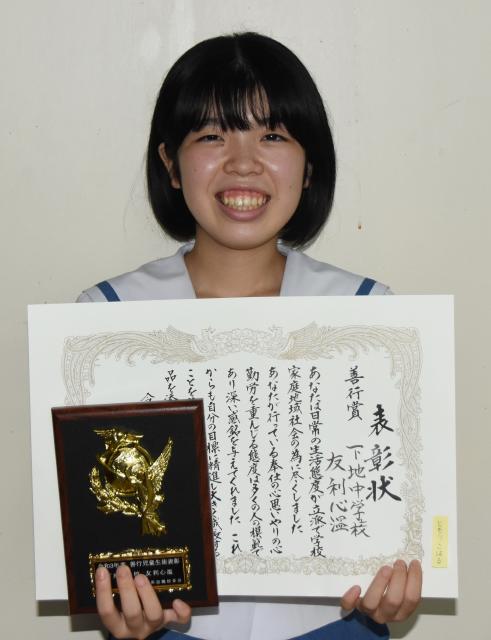 表彰状
善行賞
下地中学校
友利心温
あなたは日常の生活態度が立派で学校
家庭地域社会の為に尽くしました
あなたが行っている奉仕の心思いやりの心
勤労を重んじる態度は多くの人の模範で
あり深い感銘を与えてくれました これ
からも自分の目標に精進し
ことを
品を
令和3年度 善行児童生徒表彰
友利心温